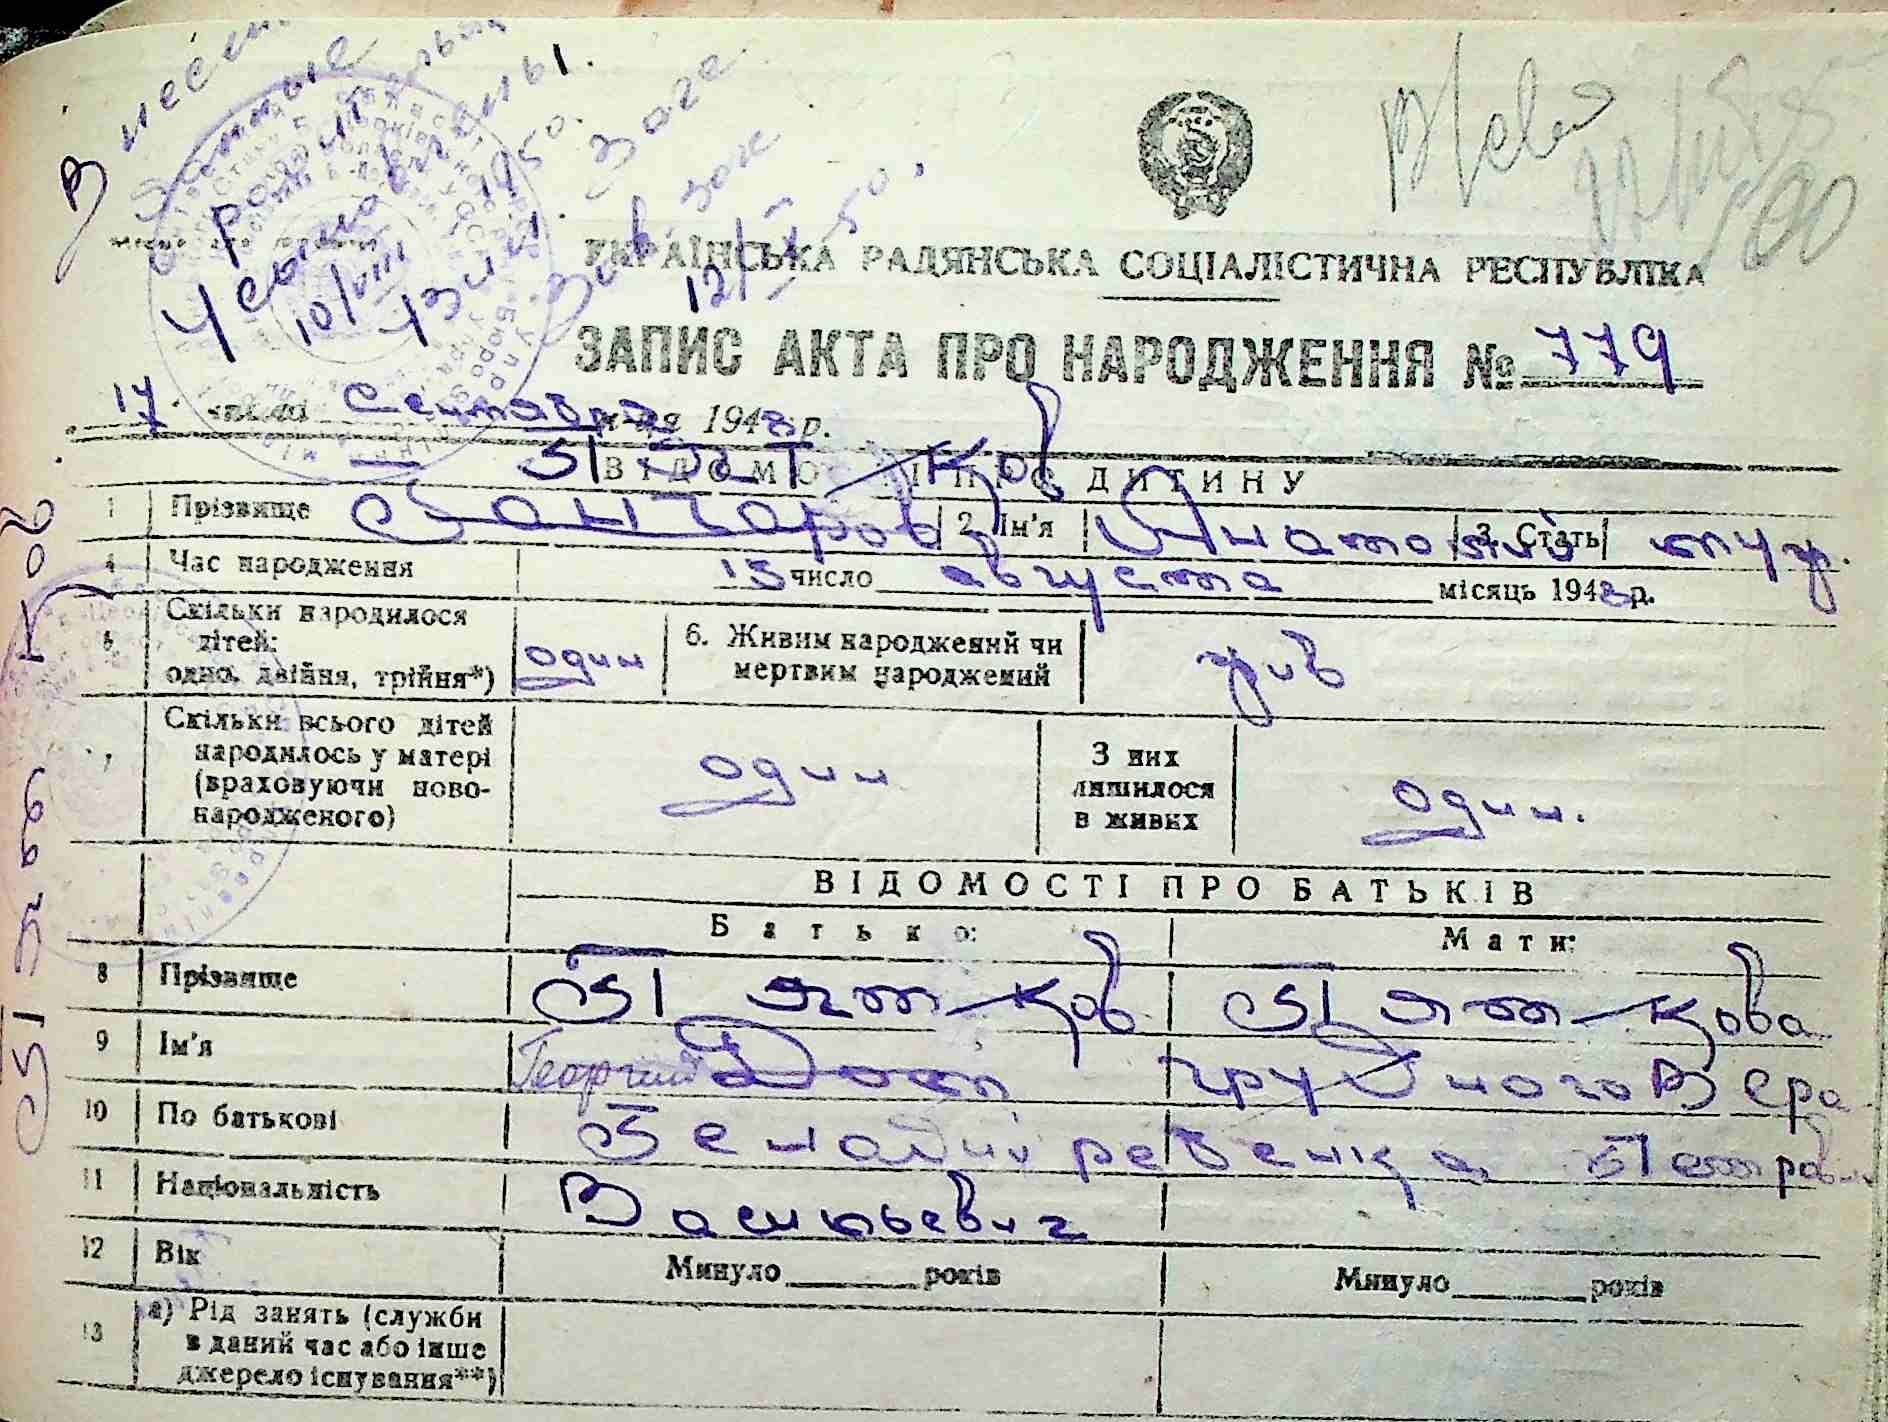 Внесены
данные
родит.
усыновлены.
10/VIII 1950.
Загс
12/X 50.
УКРАЇНСЬКА РАДЯНСЬКА СОЦІАЛІСТИЧНА РЕСПУБЛІКА
ЗАПИС АКТА ПРО НАРОДЖЕННЯ № 779
17 числа Сентября м-ця 1948 р.
Пятков
ВІДОМОСТІ ПРО ДИТИНУ
1 Прізвище Гончаров 2. Ім'я Анатолий 3. Стать муж.
4 Час народження 15 число августа місяць 1948 р.
5 Скільки народилося дітей: одно, двійня, трійня*) один 6. Живим народжений чи мертвим народжений жив
7 Скільки всього дітей народилось у матері (враховуючи новонародженого) один З них лишилося в живих один.
ВІДОМОСТІ ПРО БАТЬКІВ
Батько: Мати:
8 Прізвище Пятков Пяткова
9 Ім'я Георгий Дом грудного Вера
10 По батькові ребенка Петровна
11 Національність Васильевич
12 Вік Минуло років Минуло років
13 а) Рід занять (служби в даний час або інше джерело існування**)